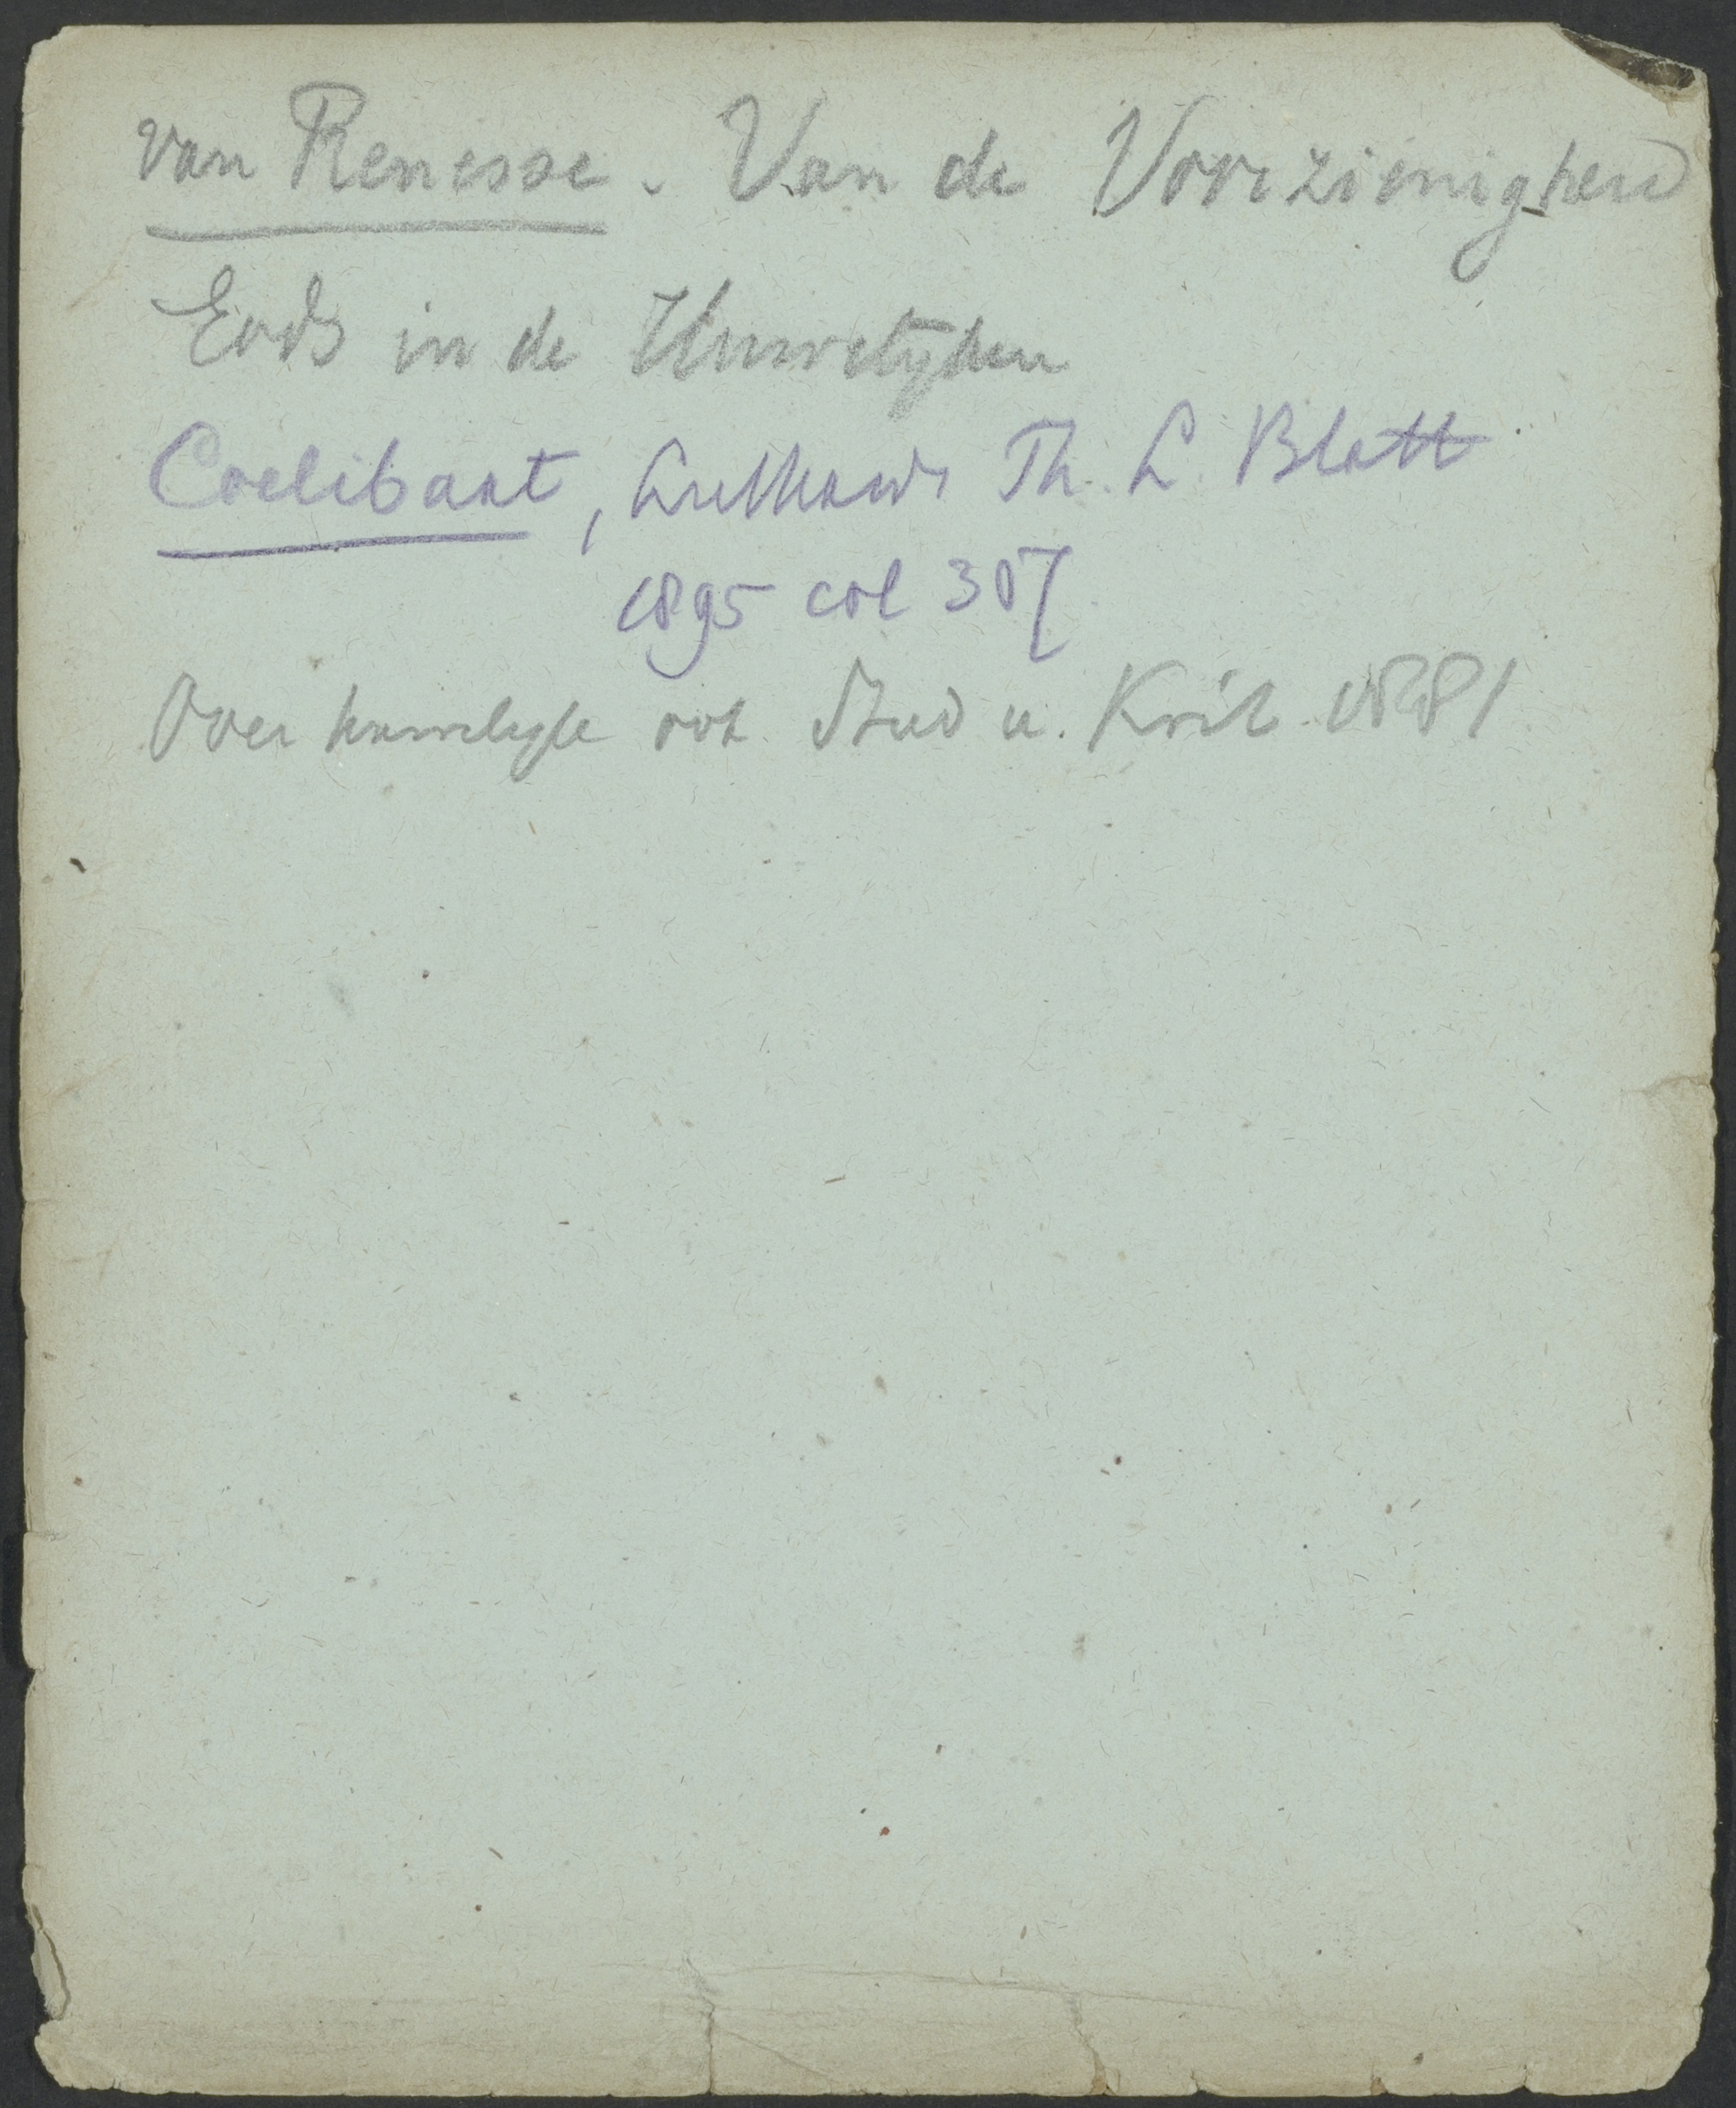 van Renesse. Van de Voorzienigheid
Gods in de Huwelijken
Coelibaat, Luthards Th. L. Blatt
1895 col 307
Over huwelijk ook Stud u. Krit. 1881